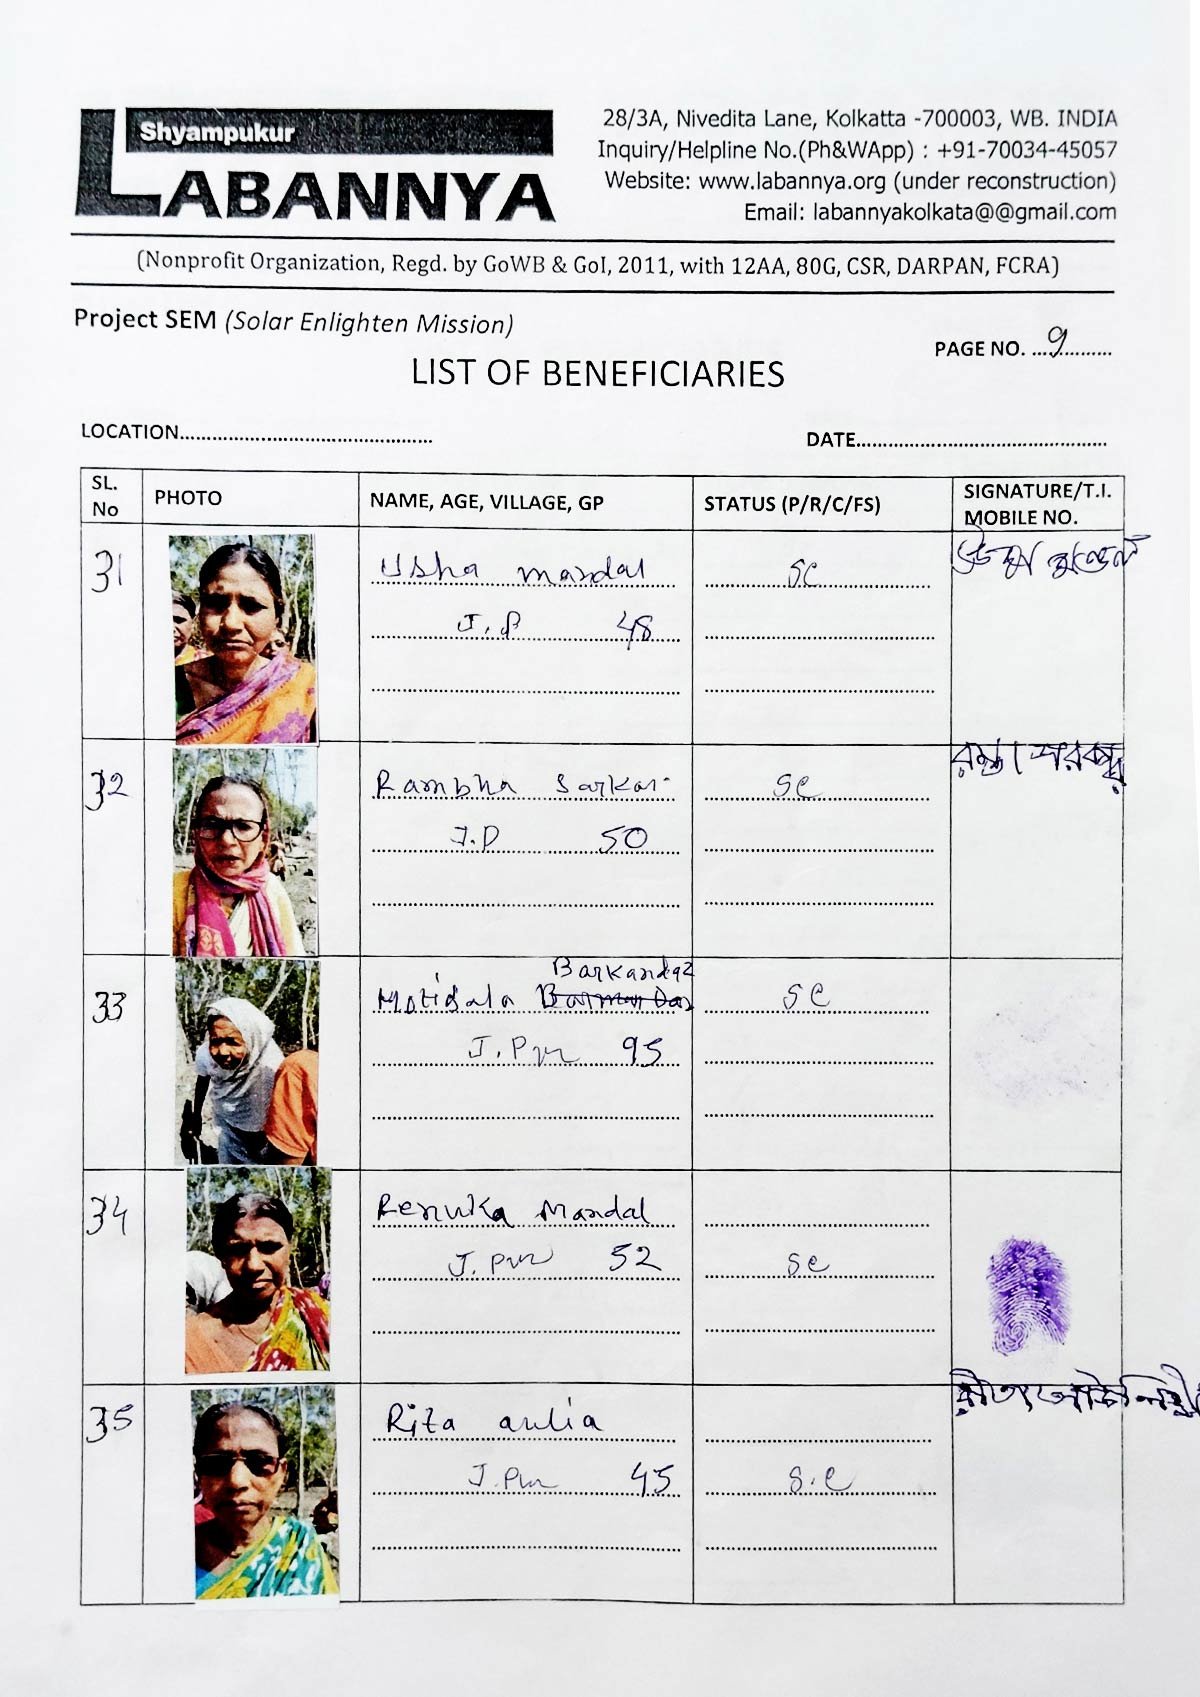 Shyampukur
LABANNYA
28/3A, Nivedita Lane, Kolkatta -700003, WB. INDIA
Inquiry/Helpline No.(Ph&WApp) : +91-70034-45057
Website: www.labannya.org (under reconstruction)
Email: labannyakolkata@@gmail.com
(Nonprofit Organization, Regd. by GoWB & GoI, 2011, with 12AA, 80G, CSR, DARPAN, FCRA)
Project SEM (Solar Enlighten Mission)
PAGE NO. ....9...........
LIST OF BENEFICIARIES
LOCATION................................................
DATE................................................
SL. No
PHOTO
NAME, AGE, VILLAGE, GP
STATUS (P/R/C/FS)
SIGNATURE/T.I. MOBILE NO.
31
Usha mandal
J.P 48
SC
32
Rambha Sarkar
J.P 50
SC
রম্ভা সরকার
33
Barkandaz
Motibala
J.Pur 95
SC
34
Renuka Mandal
J.Pur 52
SC
35
Rita aulia
J.Pur 45
S.C